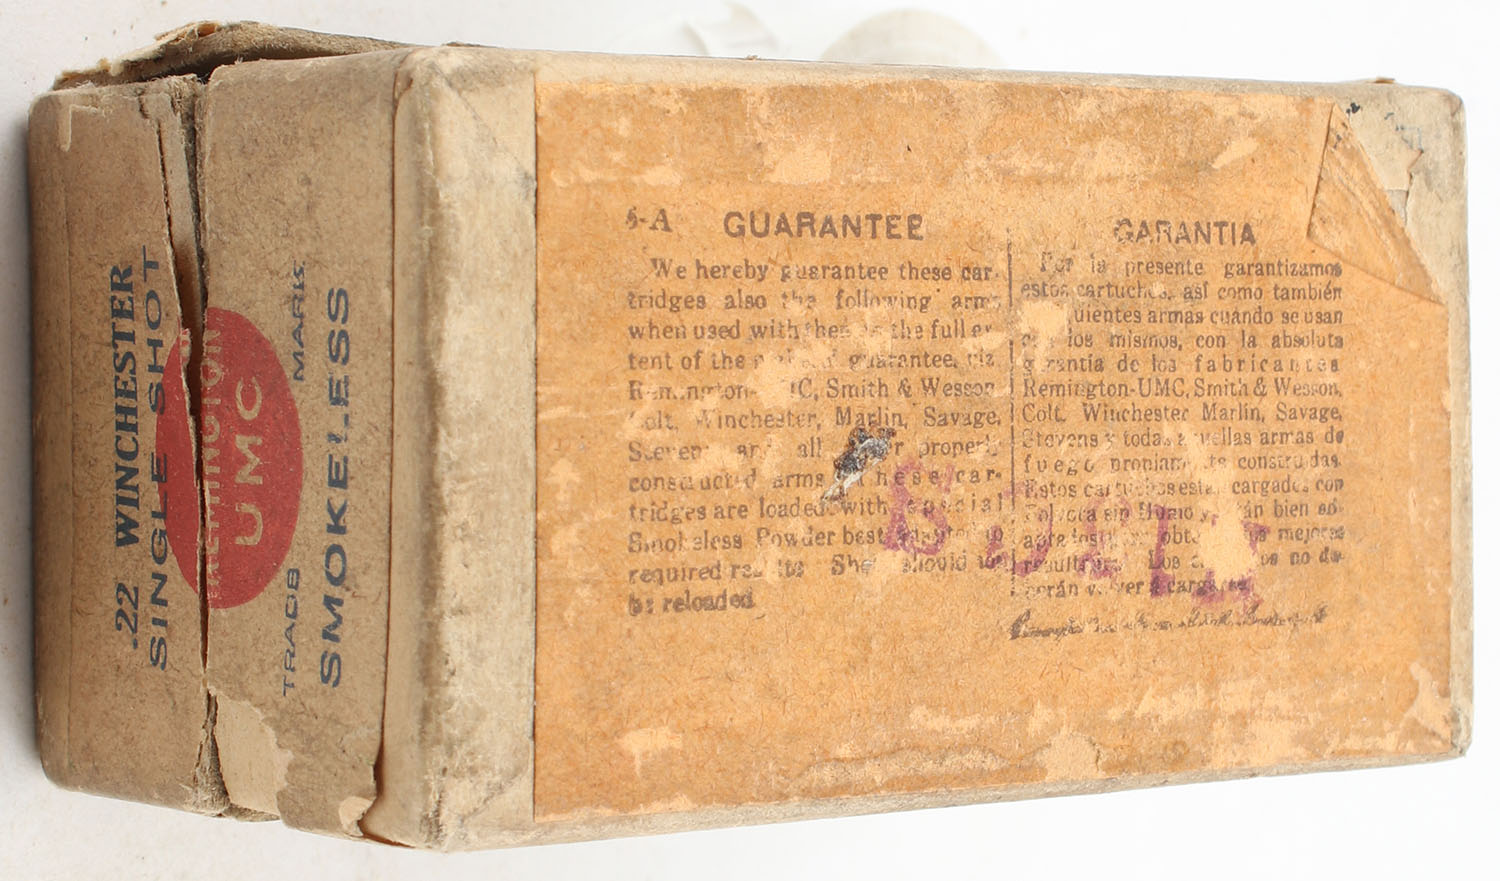 .22 WINCHESTER
SINGLE SHOT
REMINGTON
UMC
TRADE MARK
SMOKELESS
5-A GUARANTEE
We hereby guarantee these car-
tridges also the following arms
when used with them to the full ex-
tent of the guarantee, viz
Remington-UMC, Smith & Wesson
Colt, Winchester, Marlin, Savage,
Stevens and all properly
constructed arms These car-
tridges are loaded with special
Smokeless Powder best adapted to
required results Shells should
be reloaded
GARANTIA
Por la presente garantizamos
estos cartuchos, así como también
armas cuándo se usan
los mismos, con la absoluta
garantia de los fabricantes
Remington-UMC, Smith & Wesson,
Colt. Winchester Marlin, Savage,
Stevens y todas aquellas armas de
fuego propiamente construidas.
Estos cartuchos estan cargados con
Polvora sin Humo y bien
mejores
resultados Los no de-